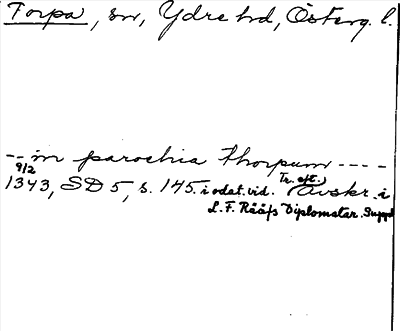 Torpa, sn, Ydre hd, Österg. l.
-- in parochia thorpum ----
9/2
1343, SD 5, s. 145. i odat. vid. Tr. eft. Avskr. i
L. F. Rääfs Diplomatar. Suppl